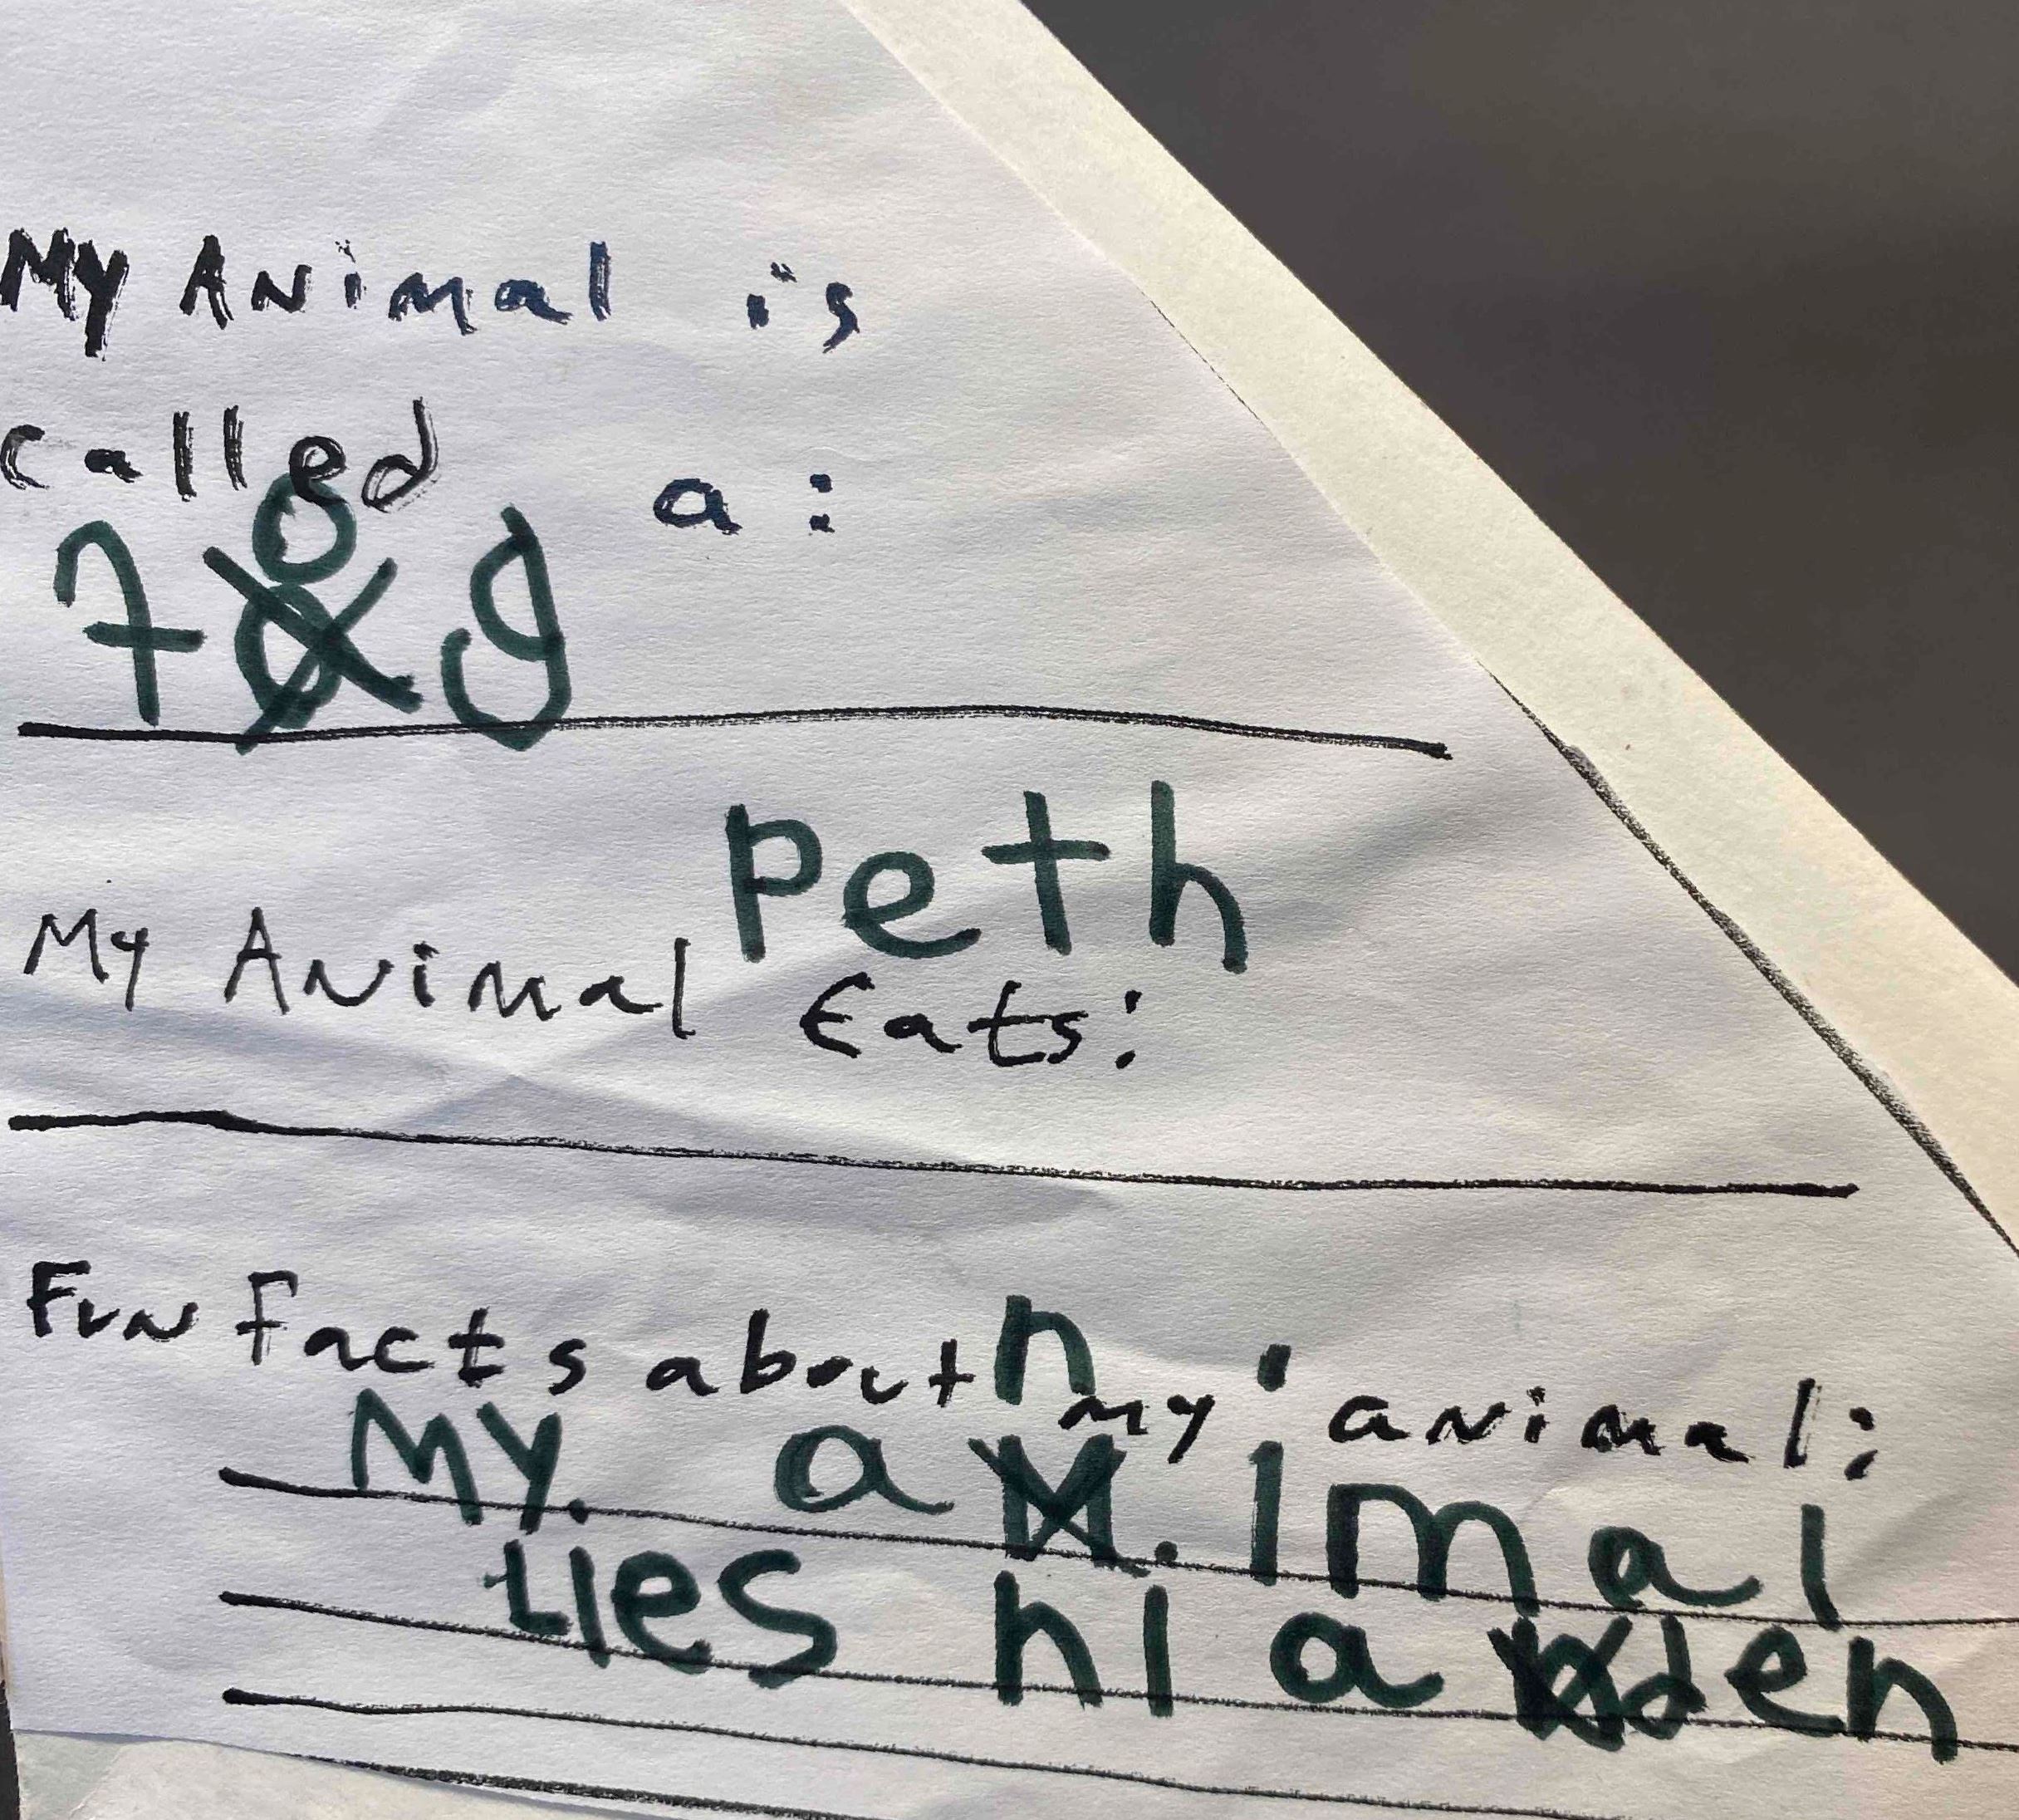 My Animal is
called a:
fog
Peth
My Animal Eats:
Fun facts about my animal:
My. an.imal
Lies hi a den